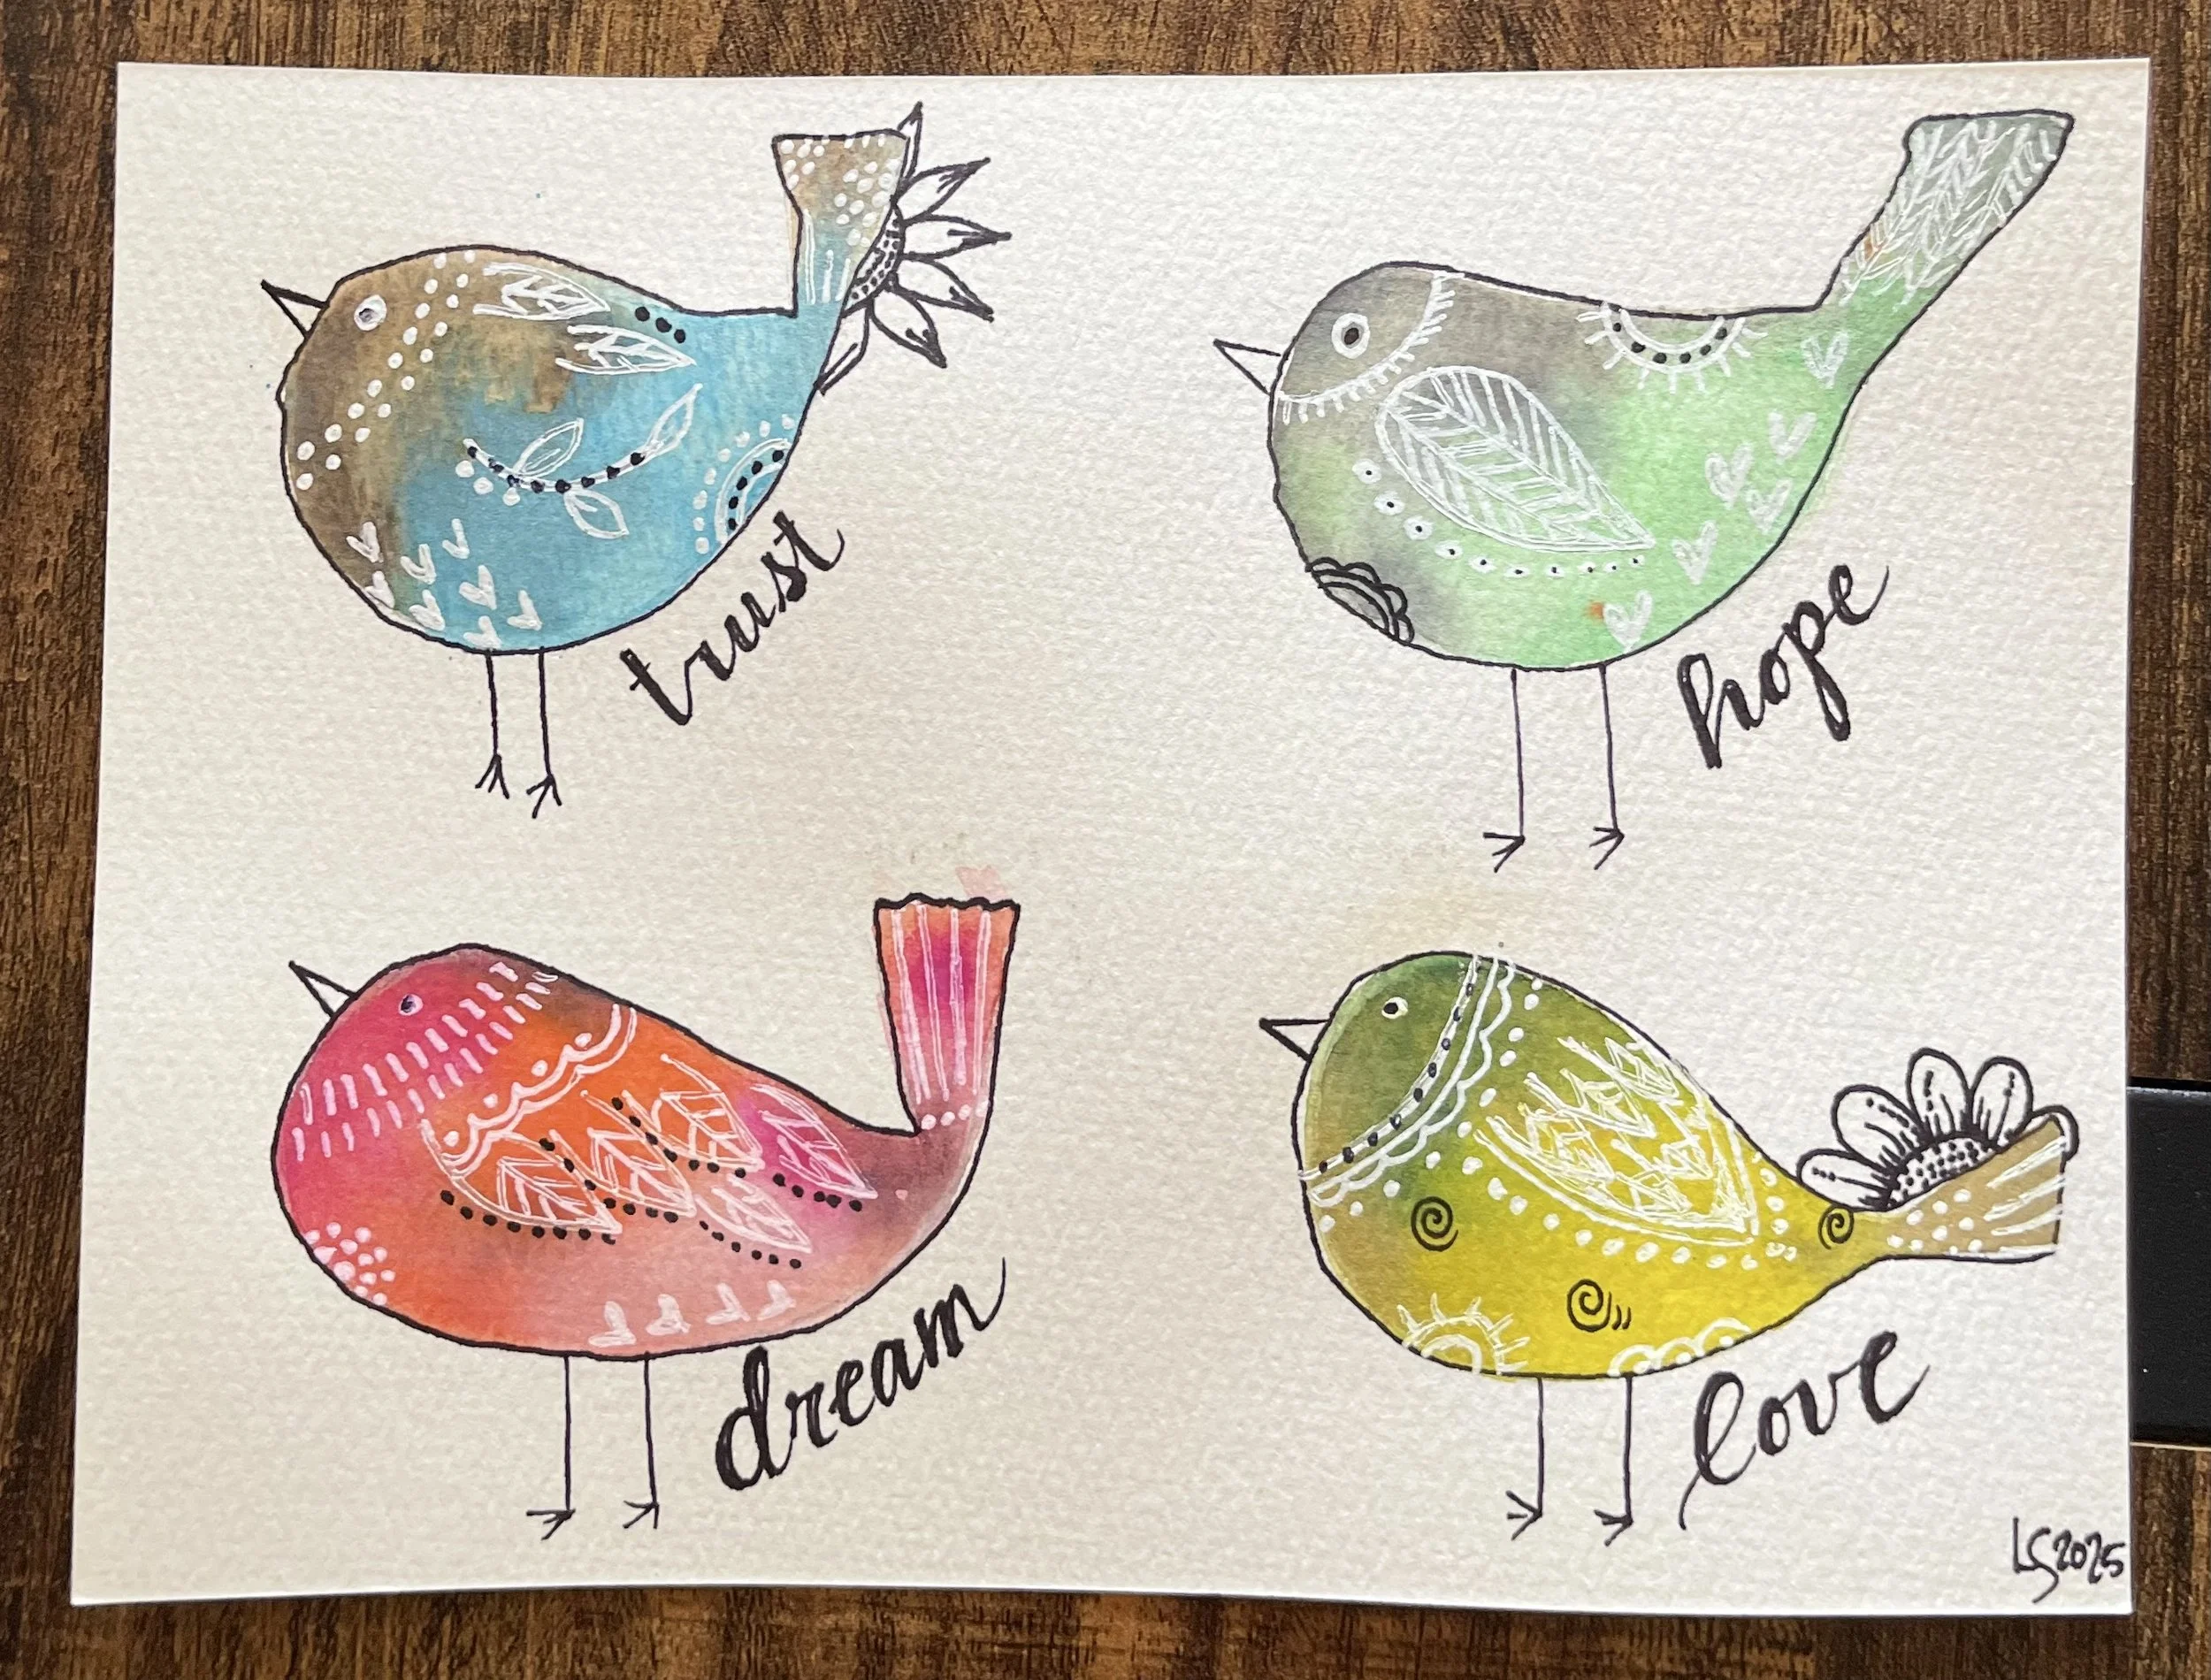 trust
hope
dream
love
LS2025